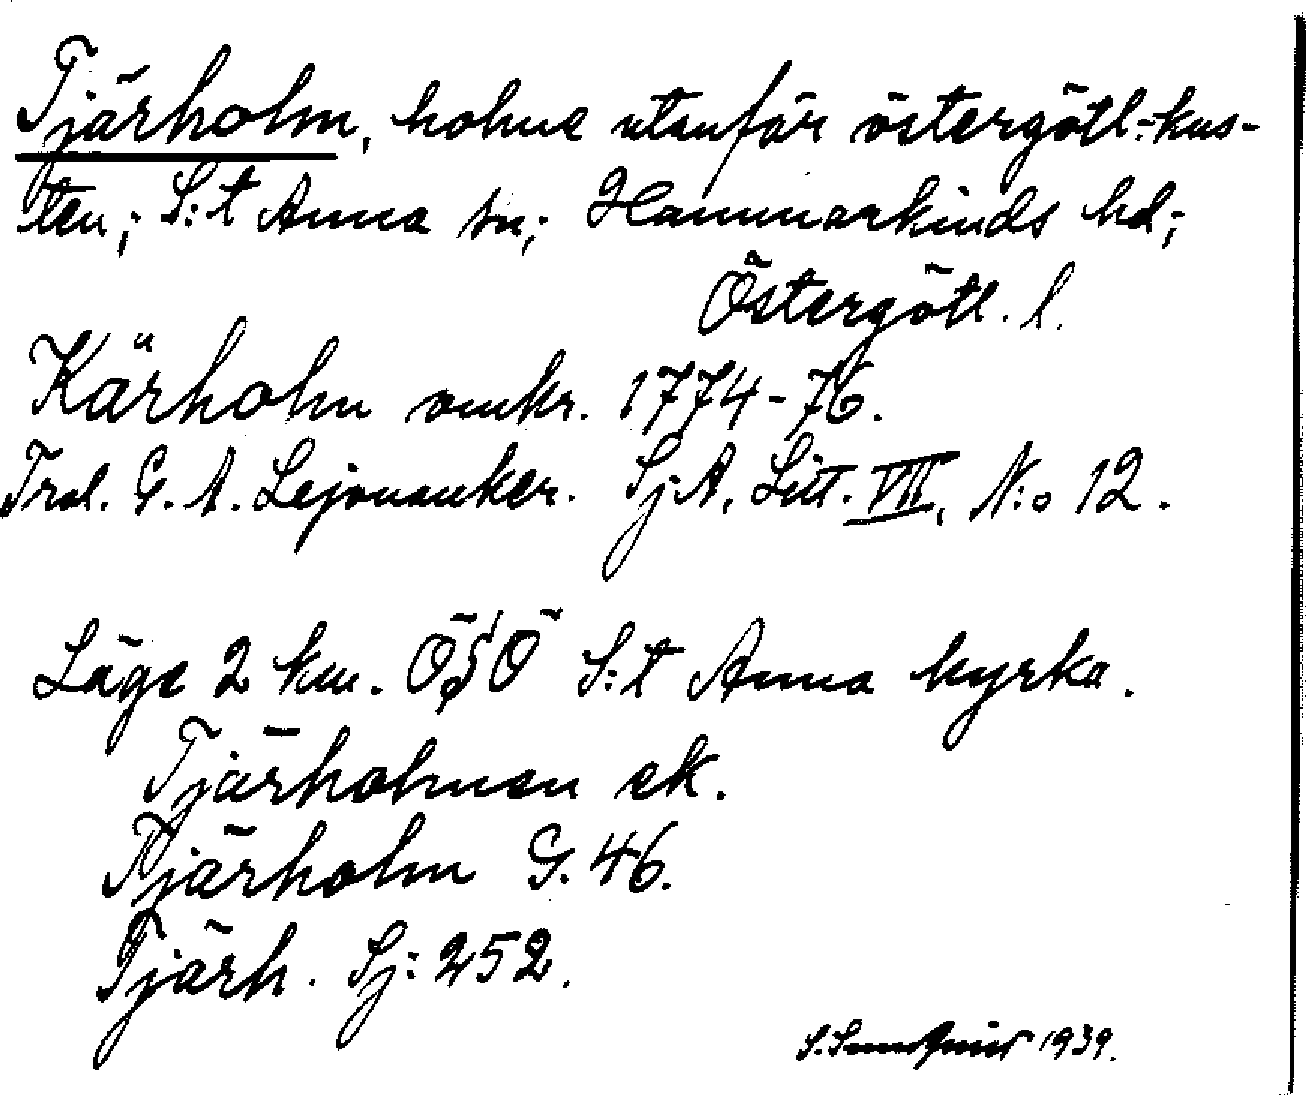 Tjärholm, holme utanför östergötl.-kus-
ten; S:t Anna sn; Hammarkinds hd;
Östergötl. l.
Kärholm omkr. 1774-76.
Trol. G. A. Lejonanker. Sj.A, Litt. VIII, N:o 12.
Läge 2 km. ÖSÖ S:t Anna kyrka.
Tjärholmen ek.
Tjärholm G. 46.
Tjärh. Sj: 252.
1939.